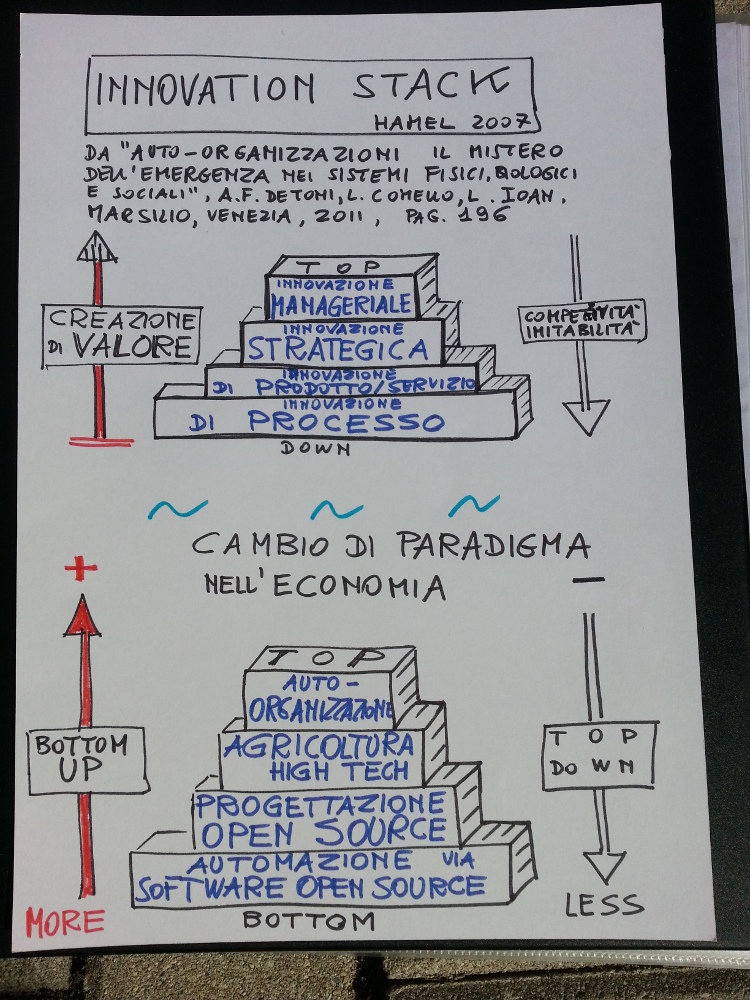 INNOVATION STACK
HAMEL 2007
DA "AUTO-ORGANIZZAZIONI IL MISTERO
DELL'EMERGENZA NEI SISTEMI FISICI, BIOLOGICI
E SOCIALI", A.F. DE TONI, L. COMELLO, L. IOAN,
MARSILIO, VENEZIA, 2011, PAG. 196
TOP
INNOVAZIONE
MANAGERIALE
INNOVAZIONE
STRATEGICA
INNOVAZIONE
DI PRODOTTO/SERVIZIO
INNOVAZIONE
DI PROCESSO
DOWN
CREAZIONE
DI VALORE
COMPETITIVITÀ
IMITABILITÀ
~ ~ ~
CAMBIO DI PARADIGMA
NELL'ECONOMIA
+
−
TOP
AUTO-
ORGANIZZAZIONE
AGRICOLTURA
HIGH TECH
PROGETTAZIONE
OPEN SOURCE
AUTOMAZIONE VIA
SOFTWARE OPEN SOURCE
BOTTOM
BOTTOM
UP
MORE
TOP
DOWN
LESS